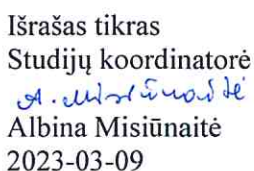 Išrašas tikras
Studijų koordinatorė
A. Misiūnaitė
Albina Misiūnaitė
2023-03-09